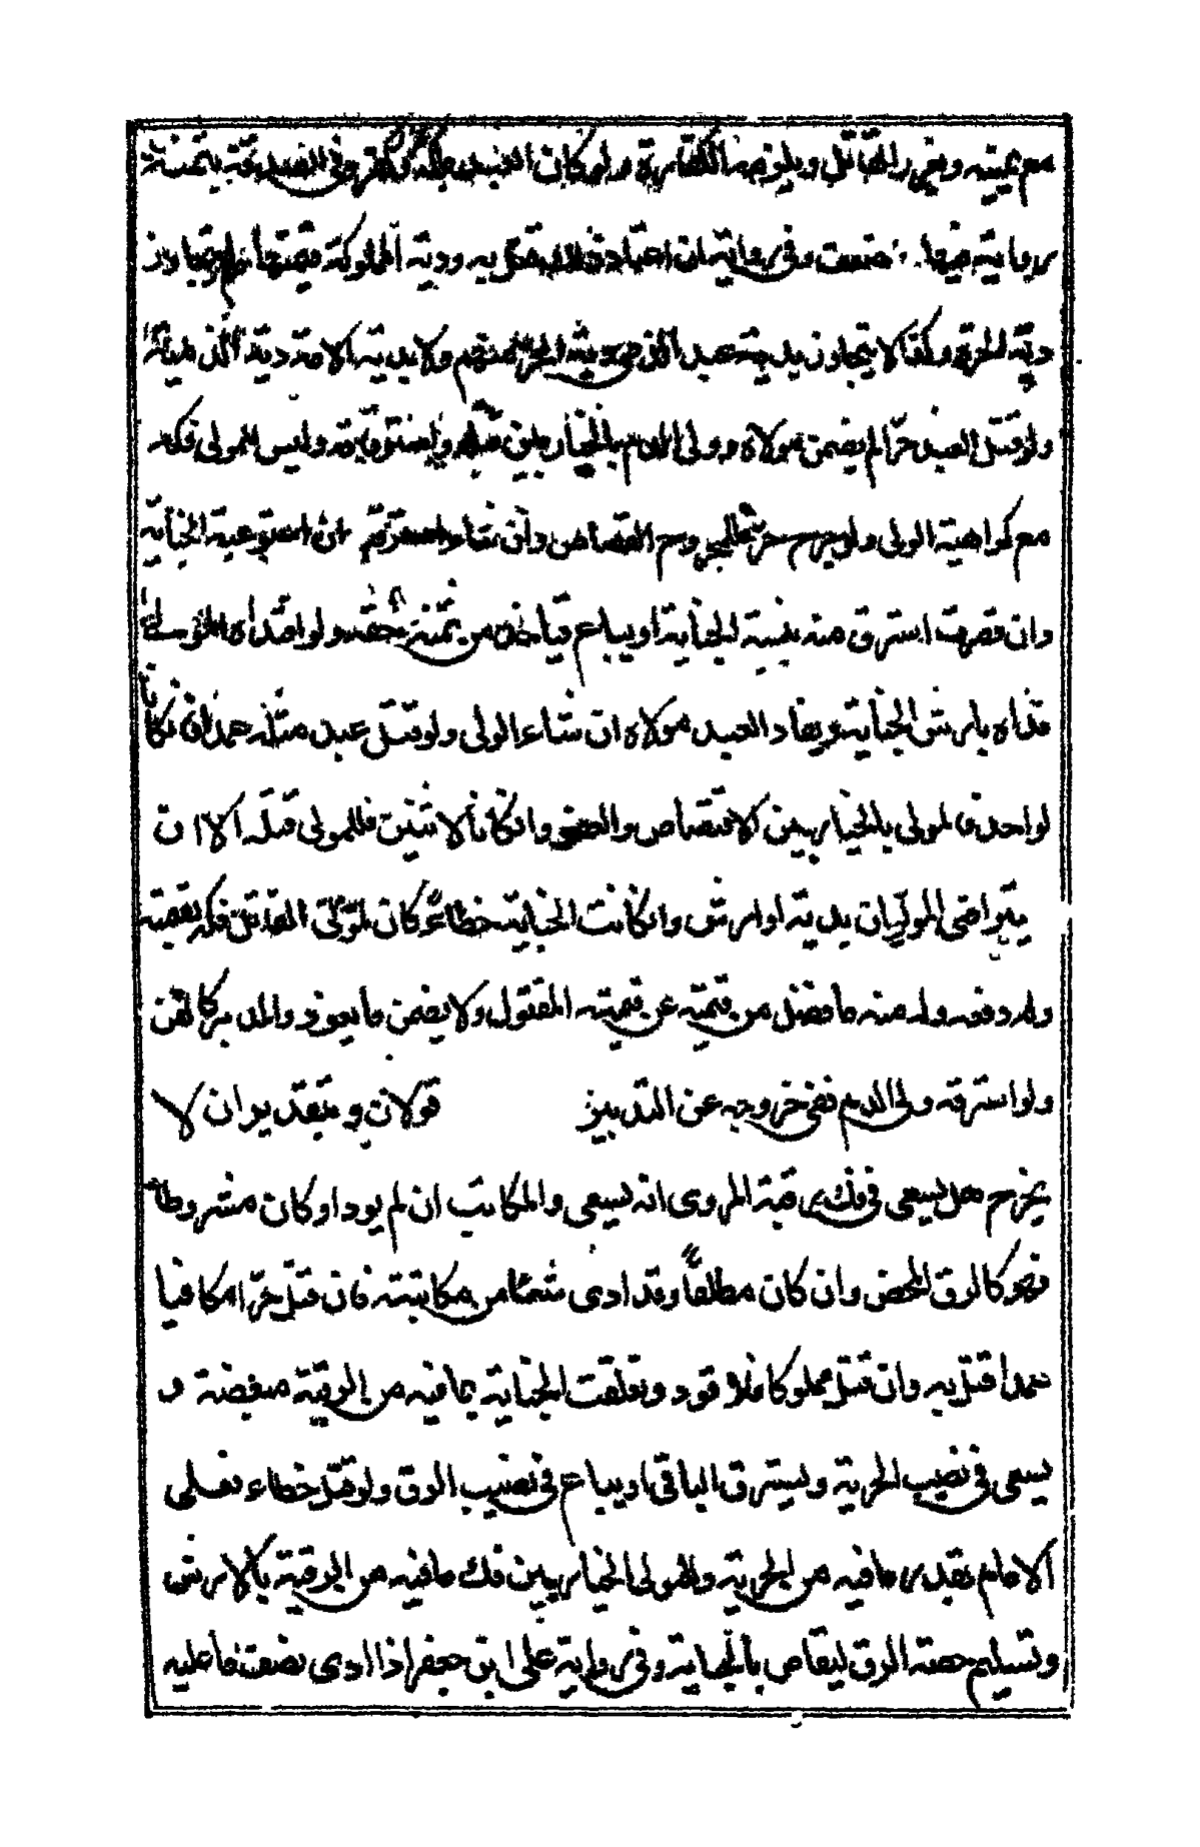 مع يمينه ويغرر القاتل ويلزمه الكفارة ولو كان العبد ملكه عزر وكفر وفى الصدقة بثمنه
رواية فيها ضعف وفى رواية ان اعتاد ذلك قتل به ودية المملوكة قيمتها ما لم يتجاوز
دية الحرة وكذا لا يتجاوز بدية عبد الذمى دية الحر منهم ولا بدية الامة دية الذمية
ولو قتل العبد حرا لم يضمن مولاه وولى الدم بالخيار بين قتله واسترقاقه وليس للمولى فكه
مع كراهية الولى ولو جرح حرا فللمجروح القصاص وان شاء استرقه ان استوعبته الجناية
وان قصرت استرق منه بنسبة الجناية او يباع فياخذ من ثمنه حقه ولو افتداه المولى
فداه بارش الجناية ويقاد العبد مولاه ان شاء الولى ولو قتل عبد مثله عمدا فان كانا
لواحد فالمولى بالخيار بين الاقتصاص والعفو وان كانا لاثنين فللمولى قتله الا ان
يتراضى الموليان بدية او ارش وان كانت الجناية خطاءً كان لمولى القاتل فكه بقيمته
وله دفعه وله منه ما فضل من قيمته عن قيمة المقتول ولا يضمن ما يعوز والمدبر كالقن
ولو استرقه ولى الدم ففى خروجه عن التدبير قولان وبتقدير ان لا
يخرج هل يسعى فى فك رقبة المروى انه يسعى والمكاتب ان لم يود او كان مشروطا
فهو كالرق المحض وان كان مطلقا وقد ادى شيئا من مكاتبته فان قتل حرا مكافيا
عمدا قتل به وان قتل مملوكا فلا قود وتعلقت الجناية بما فيه من الرقية مبعضة و
يسعى فى نصيب الحرية ويسترق الباقى او يباع فى نصيب الرق ولو قتل خطاء فعلى
الامام بقدر ما فيه من الحرية وللمولى الخيار بين فك ما فيه من الرقية بالارش
وتسليم حصة الرق ليقاص بالجناية وفى رواية على ابن جعفر اذا ادى نصف ما عليه